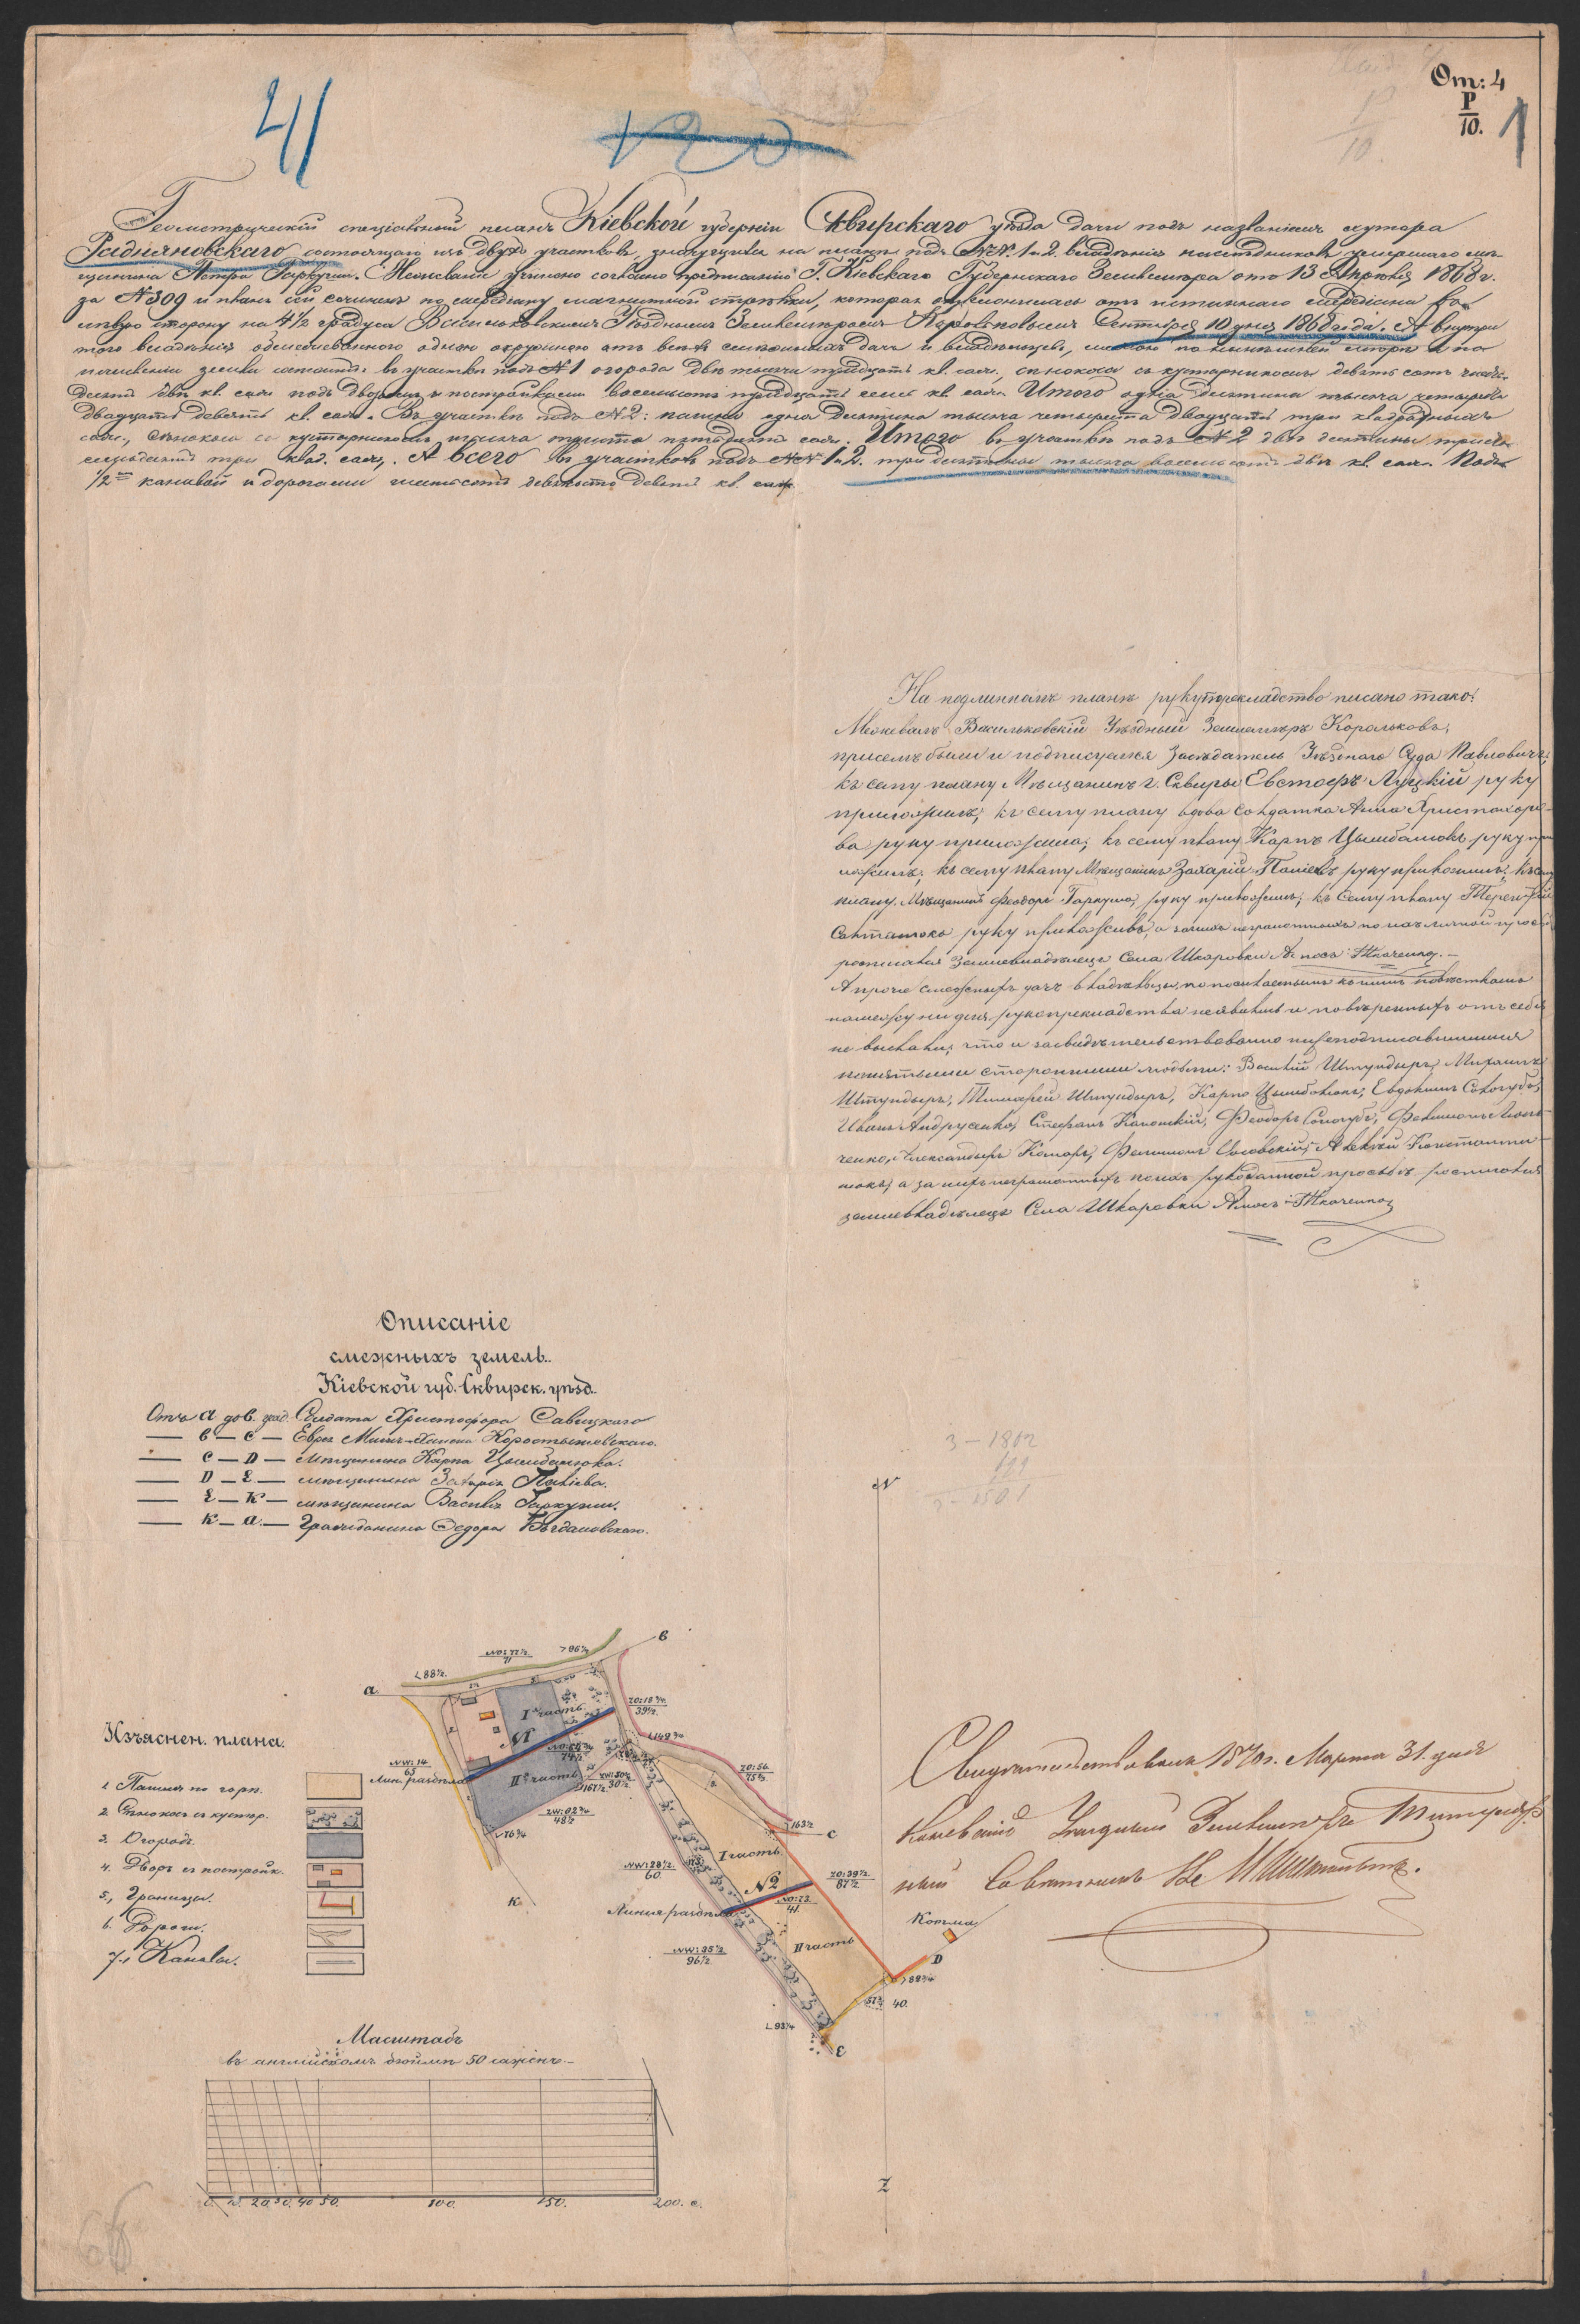 От: 4
Р
10.
1
41
120
Геометрическій спеціальный планъ Кіевской губерніи Сквирскаго уѣзда дачи подъ названіемъ хутора
состоящаго изъ двухъ участковъ, значущихся на планѣ подъ №№ 1 и 2. владѣнія наслѣдниковъ умершаго мѣ-
щанина Петра Гаркуши. Межеваніе учинено согласно предписанію Г. Кіевскаго Губернскаго Землемѣра отъ 13 Апрѣля 1868 г.
за № 309 и планъ сей сочиненъ по меридіану магнитной стрѣлки, которая отклонилась отъ истиннаго меридіана во
лѣвую сторону на 4½ градуса Васильковскимъ Уѣзднымъ Землемѣромъ Корольковымъ Сентября 10 дня 1868 года. А внутри
того владѣнія обмежеваннаго одною окружною отъ всѣхъ смежныхъ дачъ и владѣльцевъ, мѣрою по нынѣшней и по
исчисленію земли состоитъ: въ участкѣ подъ № 1 огорода двѣ тысячи тридцать кв. саж., сѣнокоса съ кустарникомъ девять сотъ
двѣ кв. саж. подъ дворомъ и постройками восемьсотъ тридцать семь кв. саж. Итого одна десятина тысяча четыреста
двадцать девять кв. саж. Въ участкѣ подъ № 2: пашни одна десятина тысяча четыреста двадцать три квадратныхъ
саж., сѣнокоса съ кустарникомъ тысяча триста пятьдесятъ саж. Итого въ участкѣ подъ № 2 двѣ десятины триста
семьдесятъ три квад. саж. А всего въ участкахъ подъ №№ 1 и 2. три десятины тысяча восемьсотъ двѣ кв. саж. Подъ
½ канавой и дорогами шестьсотъ девяносто девять кв. саж.
На подлинномъ планѣ рукоприкладство писано тако:
Межевалъ Васильковскій Уѣздный Землемѣръ Корольковъ,
при семъ были и подписуемся Засѣдатель Уѣзднаго Суда Павловичъ;
къ сему плану Мѣщанинъ г. Сквиры Евстафъ Луцкій руку
приложилъ; къ сему плану вдова солдатка Анна Христофоро-
ва руку приложила; къ сему плану Карпъ Цымбалюкъ руку при
ложилъ; къ сему плану Мѣщанинъ Захарій Паліевъ руку приложилъ; къ сему
плану Мѣщанинъ Феодоръ Гаркуша, руку приложилъ; къ сему плану Терентій
руку приложилъ, а за нихъ неграмотныхъ по ихъ личной прозьбѣ
росписался Землевладѣлецъ Села Шкаровки Амосъ Ткаченко.—
А прочіе смежныхъ дачъ владѣльцы, по посылаемымъ къ нимъ повѣсткамъ
на межу ни для рукоприкладства неявились и повѣренныхъ отъ себя
не выслали; что и засвидѣтельствовано нижеподписавшимися
понятыми сторонними людьми: Василій Штундыръ, Михаилъ
Штундыръ, Тимофей Штундыръ, Карпо Цымбалюкъ; Евдокимъ Сологубъ;
Иванъ Андрусенко, Стефанъ Каменскій, Феодоръ Сологубъ, Филимонъ
Александръ Комаръ, Филимонъ Алексѣй Константи-
нюкъ; а за нихъ неграмотныхъ по ихъ рукоданной прозьбѣ росписался
землевладѣлецъ Села Шкаровки Амосъ Ткаченко
Описаніе
смежныхъ земель.
Кіевской губ. Сквирск. уѣзд.
Отъ а до в. Солдата Христофора Савицкаго
— в — с — Коростышевскаго.
— с — D — мѣщанина Карпа Цымбалюка.
— D — Е — мѣщанина Захарія Паліева.
— Е — К — мѣщанина Василія Гаркуши.
— К — а — Гражданина Федора Богдановскаго.
3 — 1802
N
Изъяснен. плана.
1. Пашня по горѣ.
2. Сѣнокосъ съ кустар.
3. Огородъ.
4. Дворъ съ постройк.
5. Границы.
6. Дороги.
7. Канавы.
а
в
∟88½.
NO:77½
71
>86¼
Iя часть
№1
ZO:18¾
39½.
NO:64¾
74½
∟149¾
NW:14.
63
Лин. раздѣла
IIя часть
ZW:50½
30½
167½
ZW:62¾
48½
>76¾
К.
ZO:56.
75½.
>163½
С
I часть
NW:28½
60.
№2
ZO:39½
87½
NO:73.
41.
Линія раздѣла
II часть
NW:35½
96½
Корчма
D
>88¾
57¾
40.
∟93¼
Е
Свидѣтельствовалъ 1870 г. Марта 31. дня
Кіевскій Уѣздный Землемѣръ
Совѣтникъ
Масштабъ
въ англійскомъ дюймѣ 50 саженъ.—
0. 10. 20. 30. 40. 50. 100. 150. 200. с.
Z
66